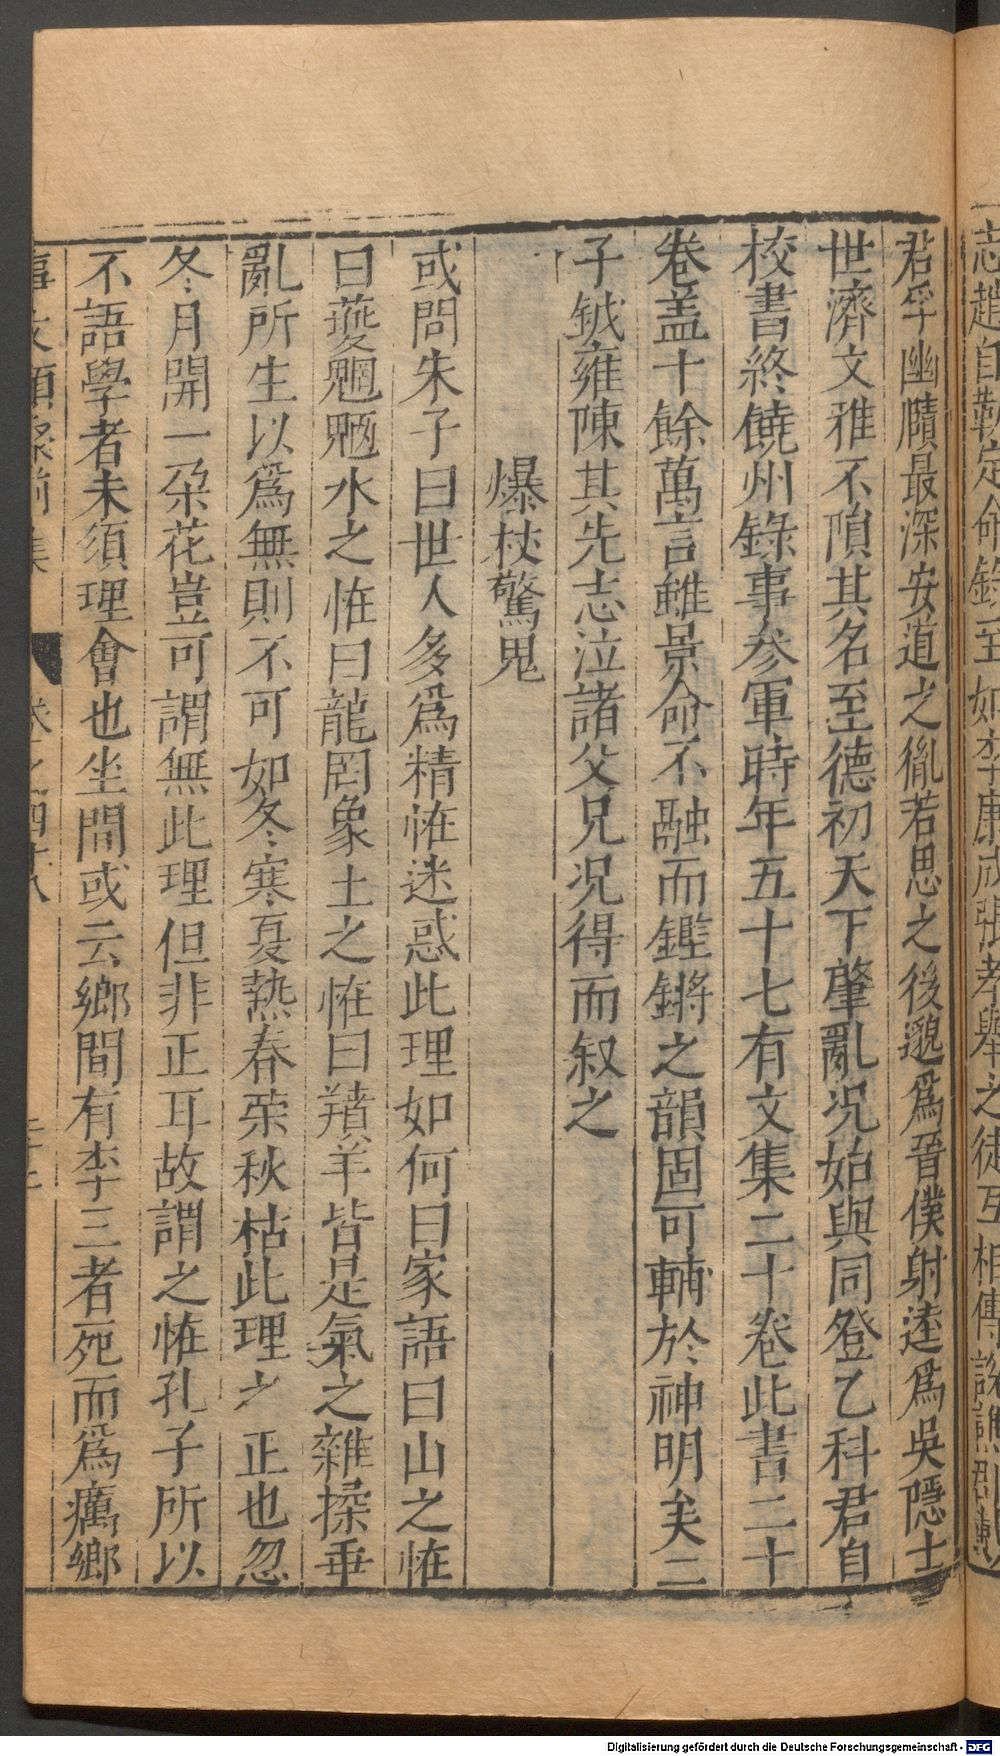 志趙自勤定命錄至如李康成張孝舉之徒互相傳
君孚幽賾最深安道之胤若思之後邈爲晉僕射逵爲吳隱士
世濟文雅不隕其名至德初天下肇亂况始與同登乙科君自
校書終饒州錄事参軍時年五十七有文集二十卷此書二十
卷盖十餘萬言雖景命不融而鏗鏘之韻固可輔於神明矣二
子鉞雍陳其先志泣諸父兄况得而叙之
爆杖驚鬼
或問朱子曰世人多爲精恠迷惑此理如何曰家語曰山之恠
曰夔魍魎水之恠曰龍罔象土之恠曰羵羊皆是氣之雜揉乖
亂所生以爲無則不可如冬寒夏熱春荣秋枯此理之正也忽
冬月開一朶花豈可謂無此理但非正耳故謂之恠孔子所以
不語學者未須理會也坐間或云鄉間有李三者死而爲癘鄉
事文類聚前集 卷之四十八
Digitalisierung gefördert durch die Deutsche Forschungsgemeinschaft - DFG